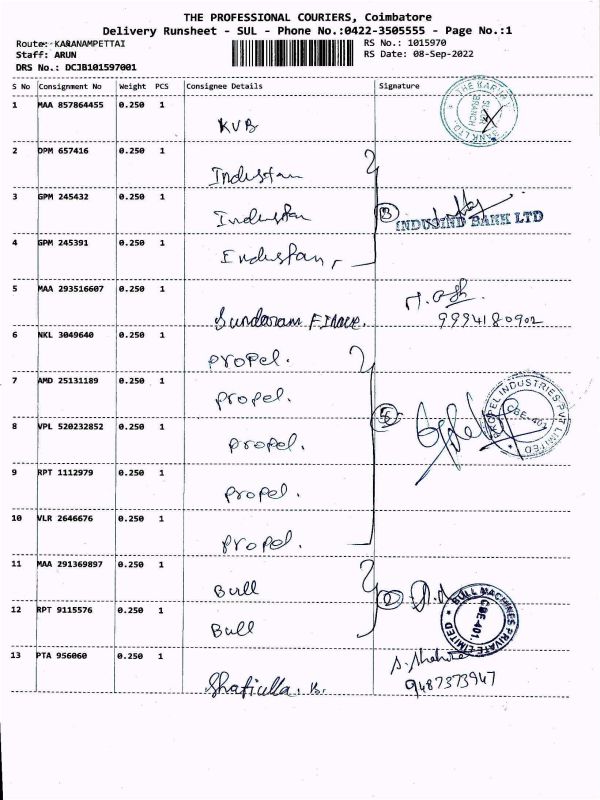 THE PROFESSIONAL COURIERS, Coimbatore
Delivery Runsheet - SUL - Phone No.:0422-3505555 - Page No.:1
Route: KARANAMPETTAI RS No.: 1015970
Staff: ARUN RS Date: 08-Sep-2022
DRS No.: DCJB101597001
S No Consignment No Weight PCS Consignee Details Signature
1 MAA 857864455 0.250 1 KVB
THE KARUR BANK LTD. BRANCH
2 DPM 657416 0.250 1 Industan
3 GPM 245432 0.250 1 Industan
3 INDUSIND BANK LTD
4 GPM 245391 0.250 1 Industan
5 MAA 293516607 0.250 1 Sundaram Finance.
9994180902
6 NKL 3049640 0.250 1 propel.
7 AMD 25131189 0.250 1 propel.
5 PROPEL INDUSTRIES PVT LIMITED CBE-401
8 VPL 520232852 0.250 1 propel.
9 RPT 1112979 0.250 1 propel.
10 VLR 2646676 0.250 1 propel.
11 MAA 291369897 0.250 1 Bull
2 BULL MACHINES PRIVATE LIMITED CBE-401.
12 RPT 9115576 0.250 1 Bull
13 PTA 956060 0.250 1 Shafiulla. B.
9487373947